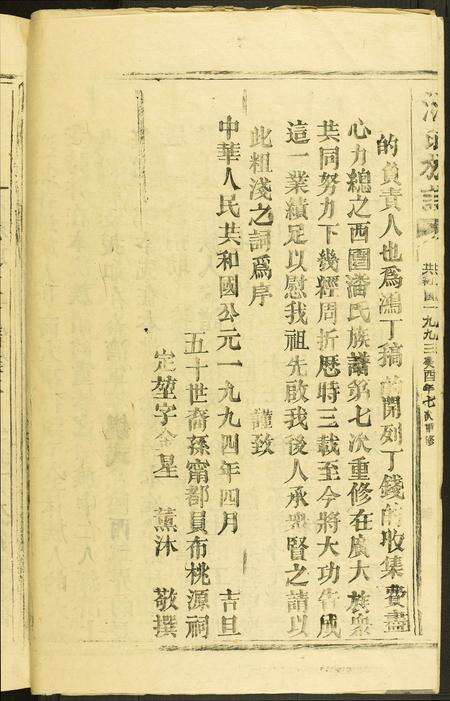 潘氏族譜
共和國一九九三癸酉年七次重修
的負責人也爲鴻丁稿的開列丁錢的收集費盡
心力總之西團潘氏族譜第七次重修在廣大族衆
共同努力下幾經周折歷時三載至今將大功告成
這一業績足以慰我祖先啟我後人承衆賢之請以
此粗淺之詞爲序 謹致
中華人民共和國公元一九九四年四月 吉旦
五十世裔孫甯都員布桃源祠
定堃字金星 薰沐 敬撰